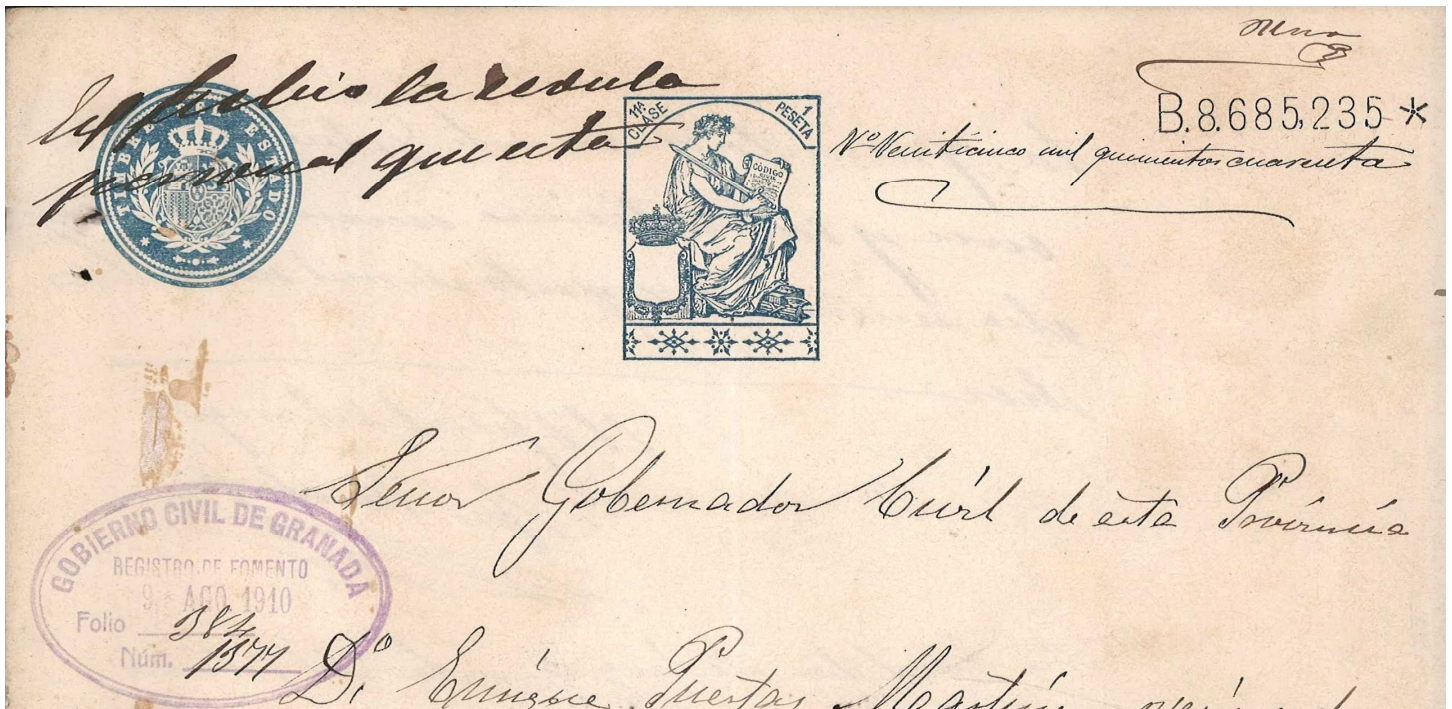 Exhibió la cedula
personal que esta
TIMBRE DEL ESTADO
11A. CLASE
1 PESETA
CÓDIGO
B.8.685,235 *
Nº Veinticinco mil quinientos cuarenta
Señor Gobernador Civil de esta Provincia
GOBIERNO CIVIL DE GRANADA
REGISTRO DE FOMENTO
9 AGO 1910
Folio 384
Núm. 1577
Dº Enrique Puertas Martin